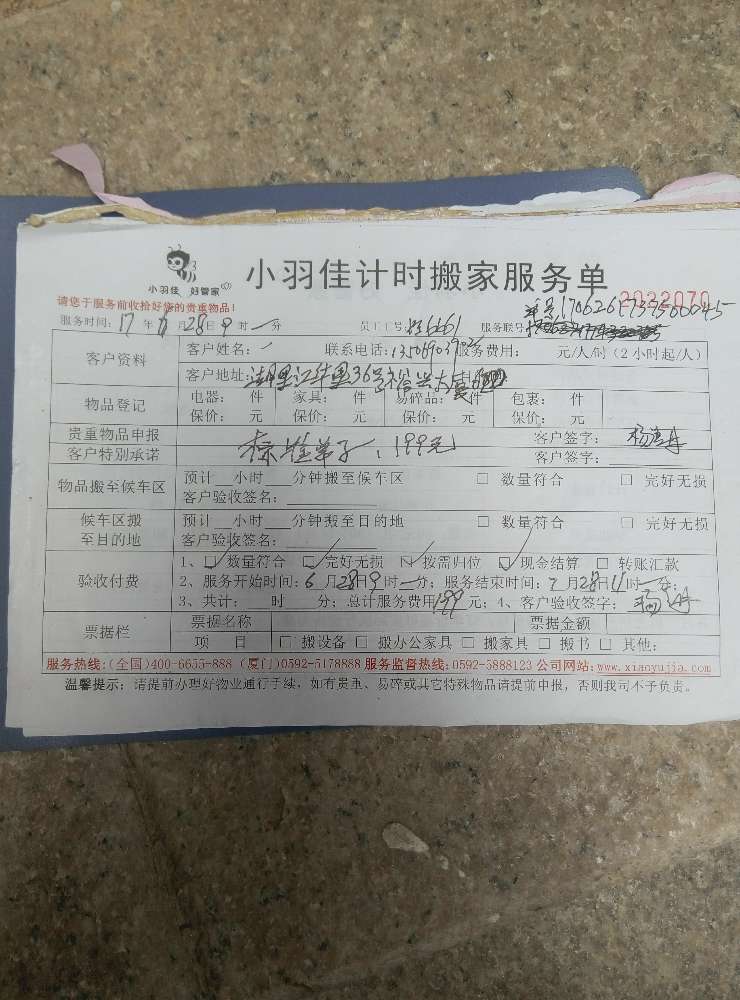 小羽佳 好管家
小羽佳计时搬家服务单
请您于服务前收拾好您的贵重物品!
2022070
服务时间: 17 年 月 28 日 9 时 一 分 员工工号: 服务联号:
客户资料
客户姓名: 联系电话: 服务费用: 元/人/时 (2小时起/人)
客户地址: 湖里江华里36号裕兴大厦
物品登记
电器: 件 家具: 件 易碎品: 件 包裹: 件
保价: 元 保价: 元 保价: 元 保价: 元
贵重物品申报 客户签字:
客户特别承诺 199元 客户签字:
物品搬至候车区
预计__小时__分钟搬至候车区 □ 数量符合 □ 完好无损
客户验收签名:
候车区搬至目的地
预计__小时__分钟我至目的地 □ 数量符合 □ 完好无损
客户验收签名:
验收付费
1、☑ 数量符合 ☑ 完好无损 ☑ 按需归位 ☑ 现金结算 □ 转账汇款
2、服务开始时间: 6 月 28 日 9 时 一 分; 服务结束时间: 月 28 日 11 时 一 分;
3、共计: __时__分; 总计服务费用 199 元; 4、客户验收签字:
票据栏
票据名称 票据金额
项 目 □ 搬设备 □ 搬办公家具 □ 搬家具 □ 搬书 □ 其他:
服务热线:(全国)400-6655-888 (厦门)0592-5178888 服务监督热线:0592-5888123 公司网站:www.xiaoyujia.com
温馨提示: 请提前办理好物业通行手续, 如有贵重、易碎或其它特殊物品请提前申报, 否则我司不予负责。